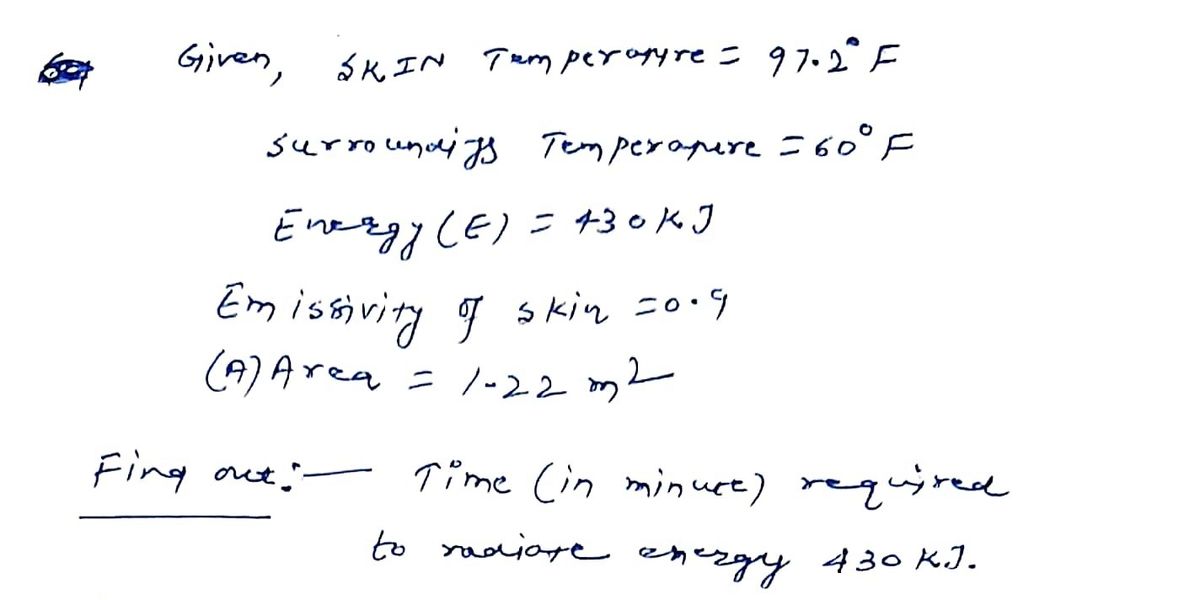 Given, SKIN Temperature = 97.2° F
Surroundigs Temperature = 60° F
Energy (E) = 430 KJ
Emissivity of skin = 0.9
(A) Area = 1.22 m²
Fing out:— Time (in minute) required
to radiate energy 430 KJ.